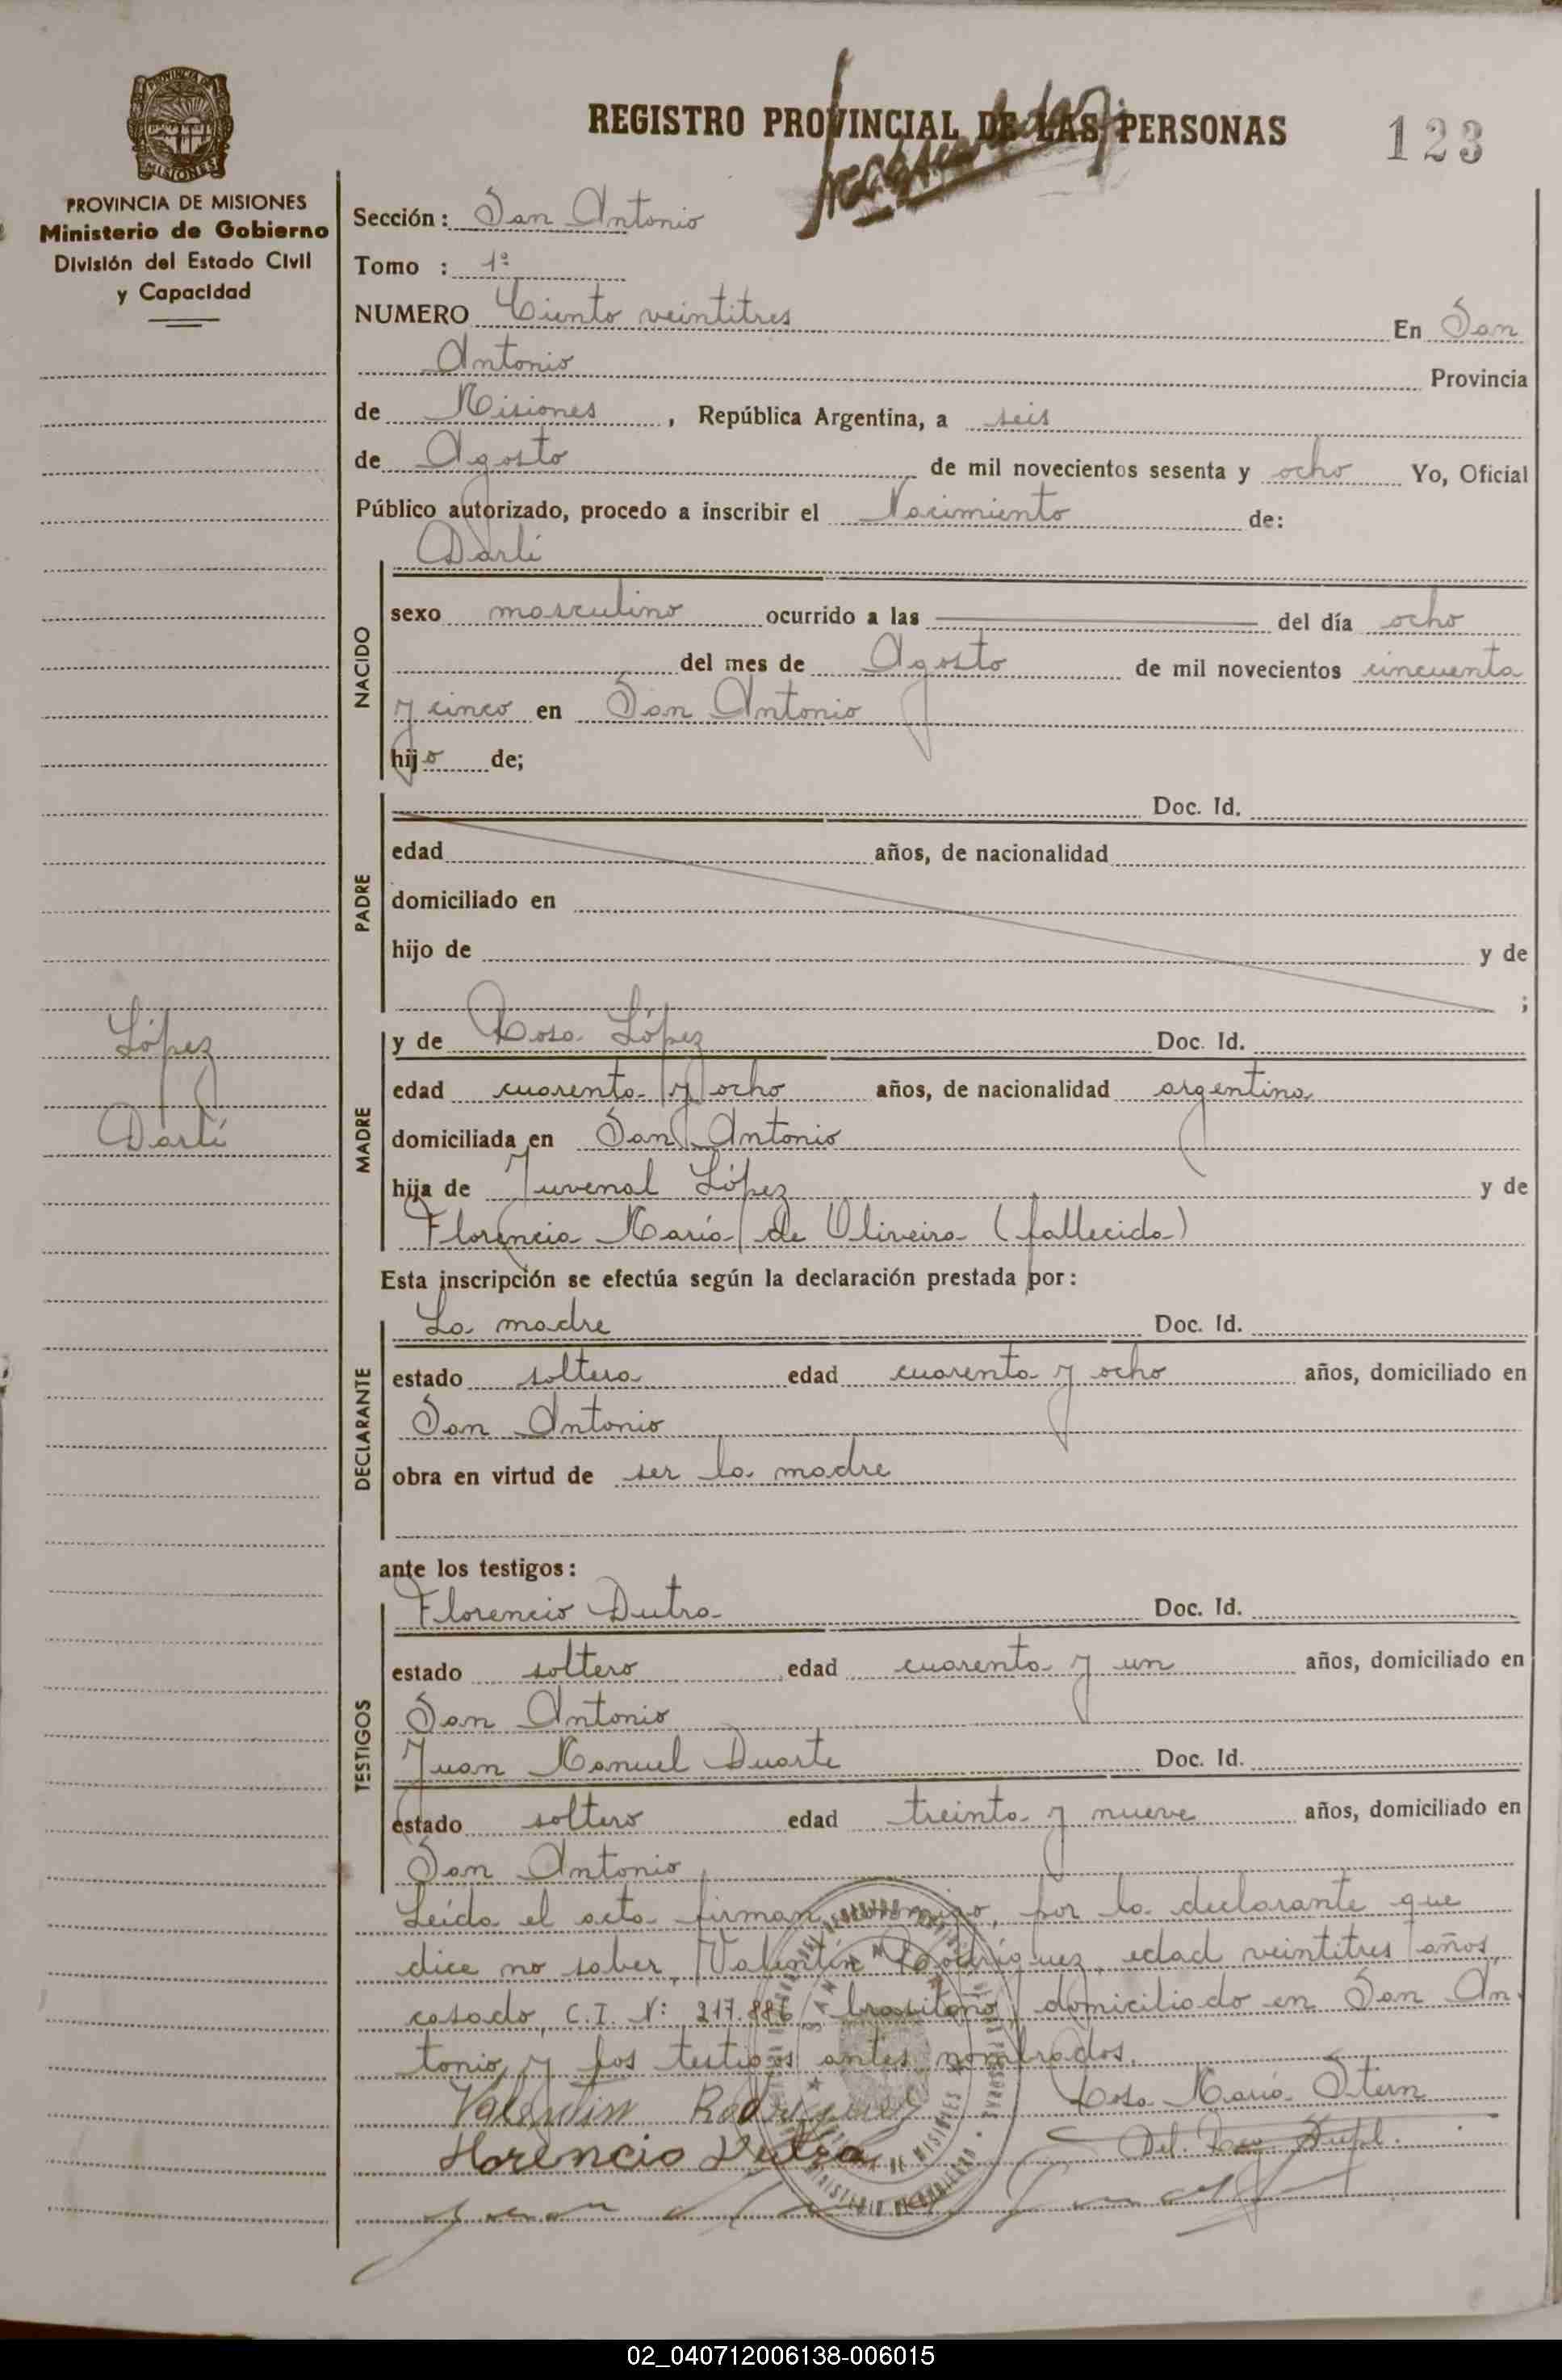 REGISTRO PROVINCIAL DE LAS PERSONAS
123
PROVINCIA DE MISIONES
MISIONES
PROVINCIA DE MISIONES
Ministerio de Gobierno
División del Estado Civil
y Capacidad
López
Darli
Sección: San Antonio
Tomo : 1º
NUMERO Ciento veintitres En San
Antonio Provincia
de Misiones, República Argentina, a seis
de Agosto de mil novecientos sesenta y ocho Yo, Oficial
Público autorizado, procedo a inscribir el Nacimiento de:
NACIDO
Darli
sexo masculino ocurrido a las del día ocho
del mes de Agosto de mil novecientos cincuenta
y cinco en San Antonio
hijo de;
PADRE
Doc. Id.
edad años, de nacionalidad
domiciliado en
hijo de y de
;
MADRE
y de Rosa López Doc. Id.
edad cuarenta y ocho años, de nacionalidad argentina
domiciliada en San Antonio
hija de Juvenal López y de
Florencia María de Oliveira (fallecida)
Esta inscripción se efectúa según la declaración prestada por:
DECLARANTE
La madre Doc. Id.
estado soltera edad cuarenta y ocho años, domiciliado en
San Antonio
obra en virtud de ser la madre
ante los testigos:
TESTIGOS
Florencio Dutra Doc. Id.
estado soltero edad cuarenta y un años, domiciliado en
San Antonio
Juan Manuel Duarte Doc. Id.
estado soltero edad treinta y nueve años, domiciliado en
San Antonio
Leída el acta firman conmigo, por la declarante que
dice no saber, Valentín Rodríguez, edad veintitres años,
casado, C.I. N: 217.886, brasileño, domiciliado en San An-
tonio, y los testigos antes nombrados.
Valentin Rodriguez Rosa María Stern
Florencio Dutra Del. Supl.
Juan
02_040712006138-006015